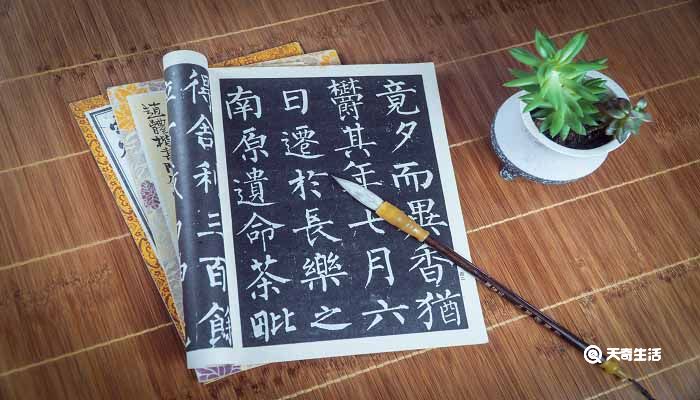 竟夕而異香猶
欝其年七月六
日遷於長樂之
南原遺命茶毗
得舍利三百餘
天奇生活